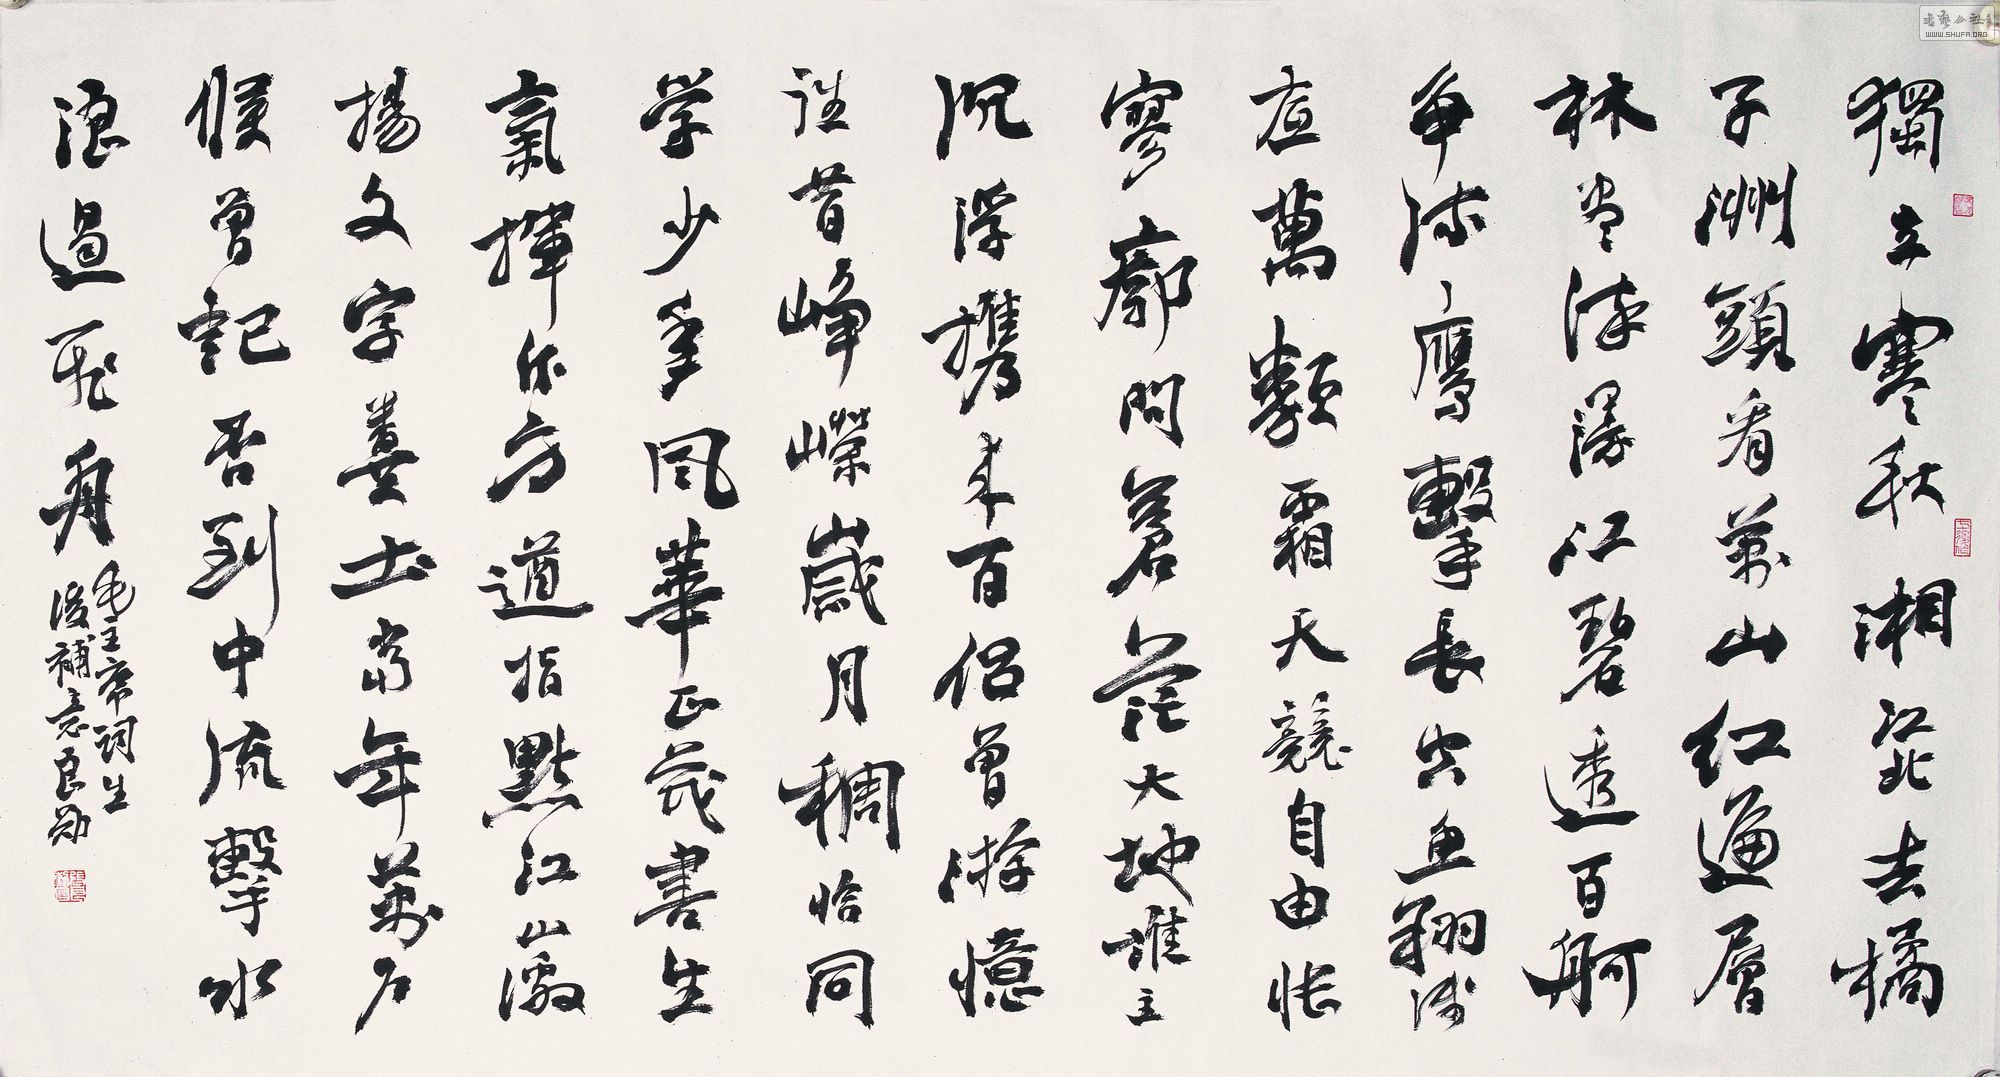 獨立寒秋湘江北去橘
子洲頭看萬山红遍層
林尽染漫江碧透百舸
争流鹰擊長空鱼翔浅
底萬類霜天競自由怅
寥廓問蒼茫大地誰主
沉浮攜来百侣曾游憶
往昔峥嶸歲月稠恰同
学少年風華正茂書生
氣揮斥方遒指點江山激
揚文字糞土當年萬户
候曾記否到中流擊水
浪遏飛舟
毛主席词生
後補意良勋
書藝公社
WWW.SHUFA.ORG